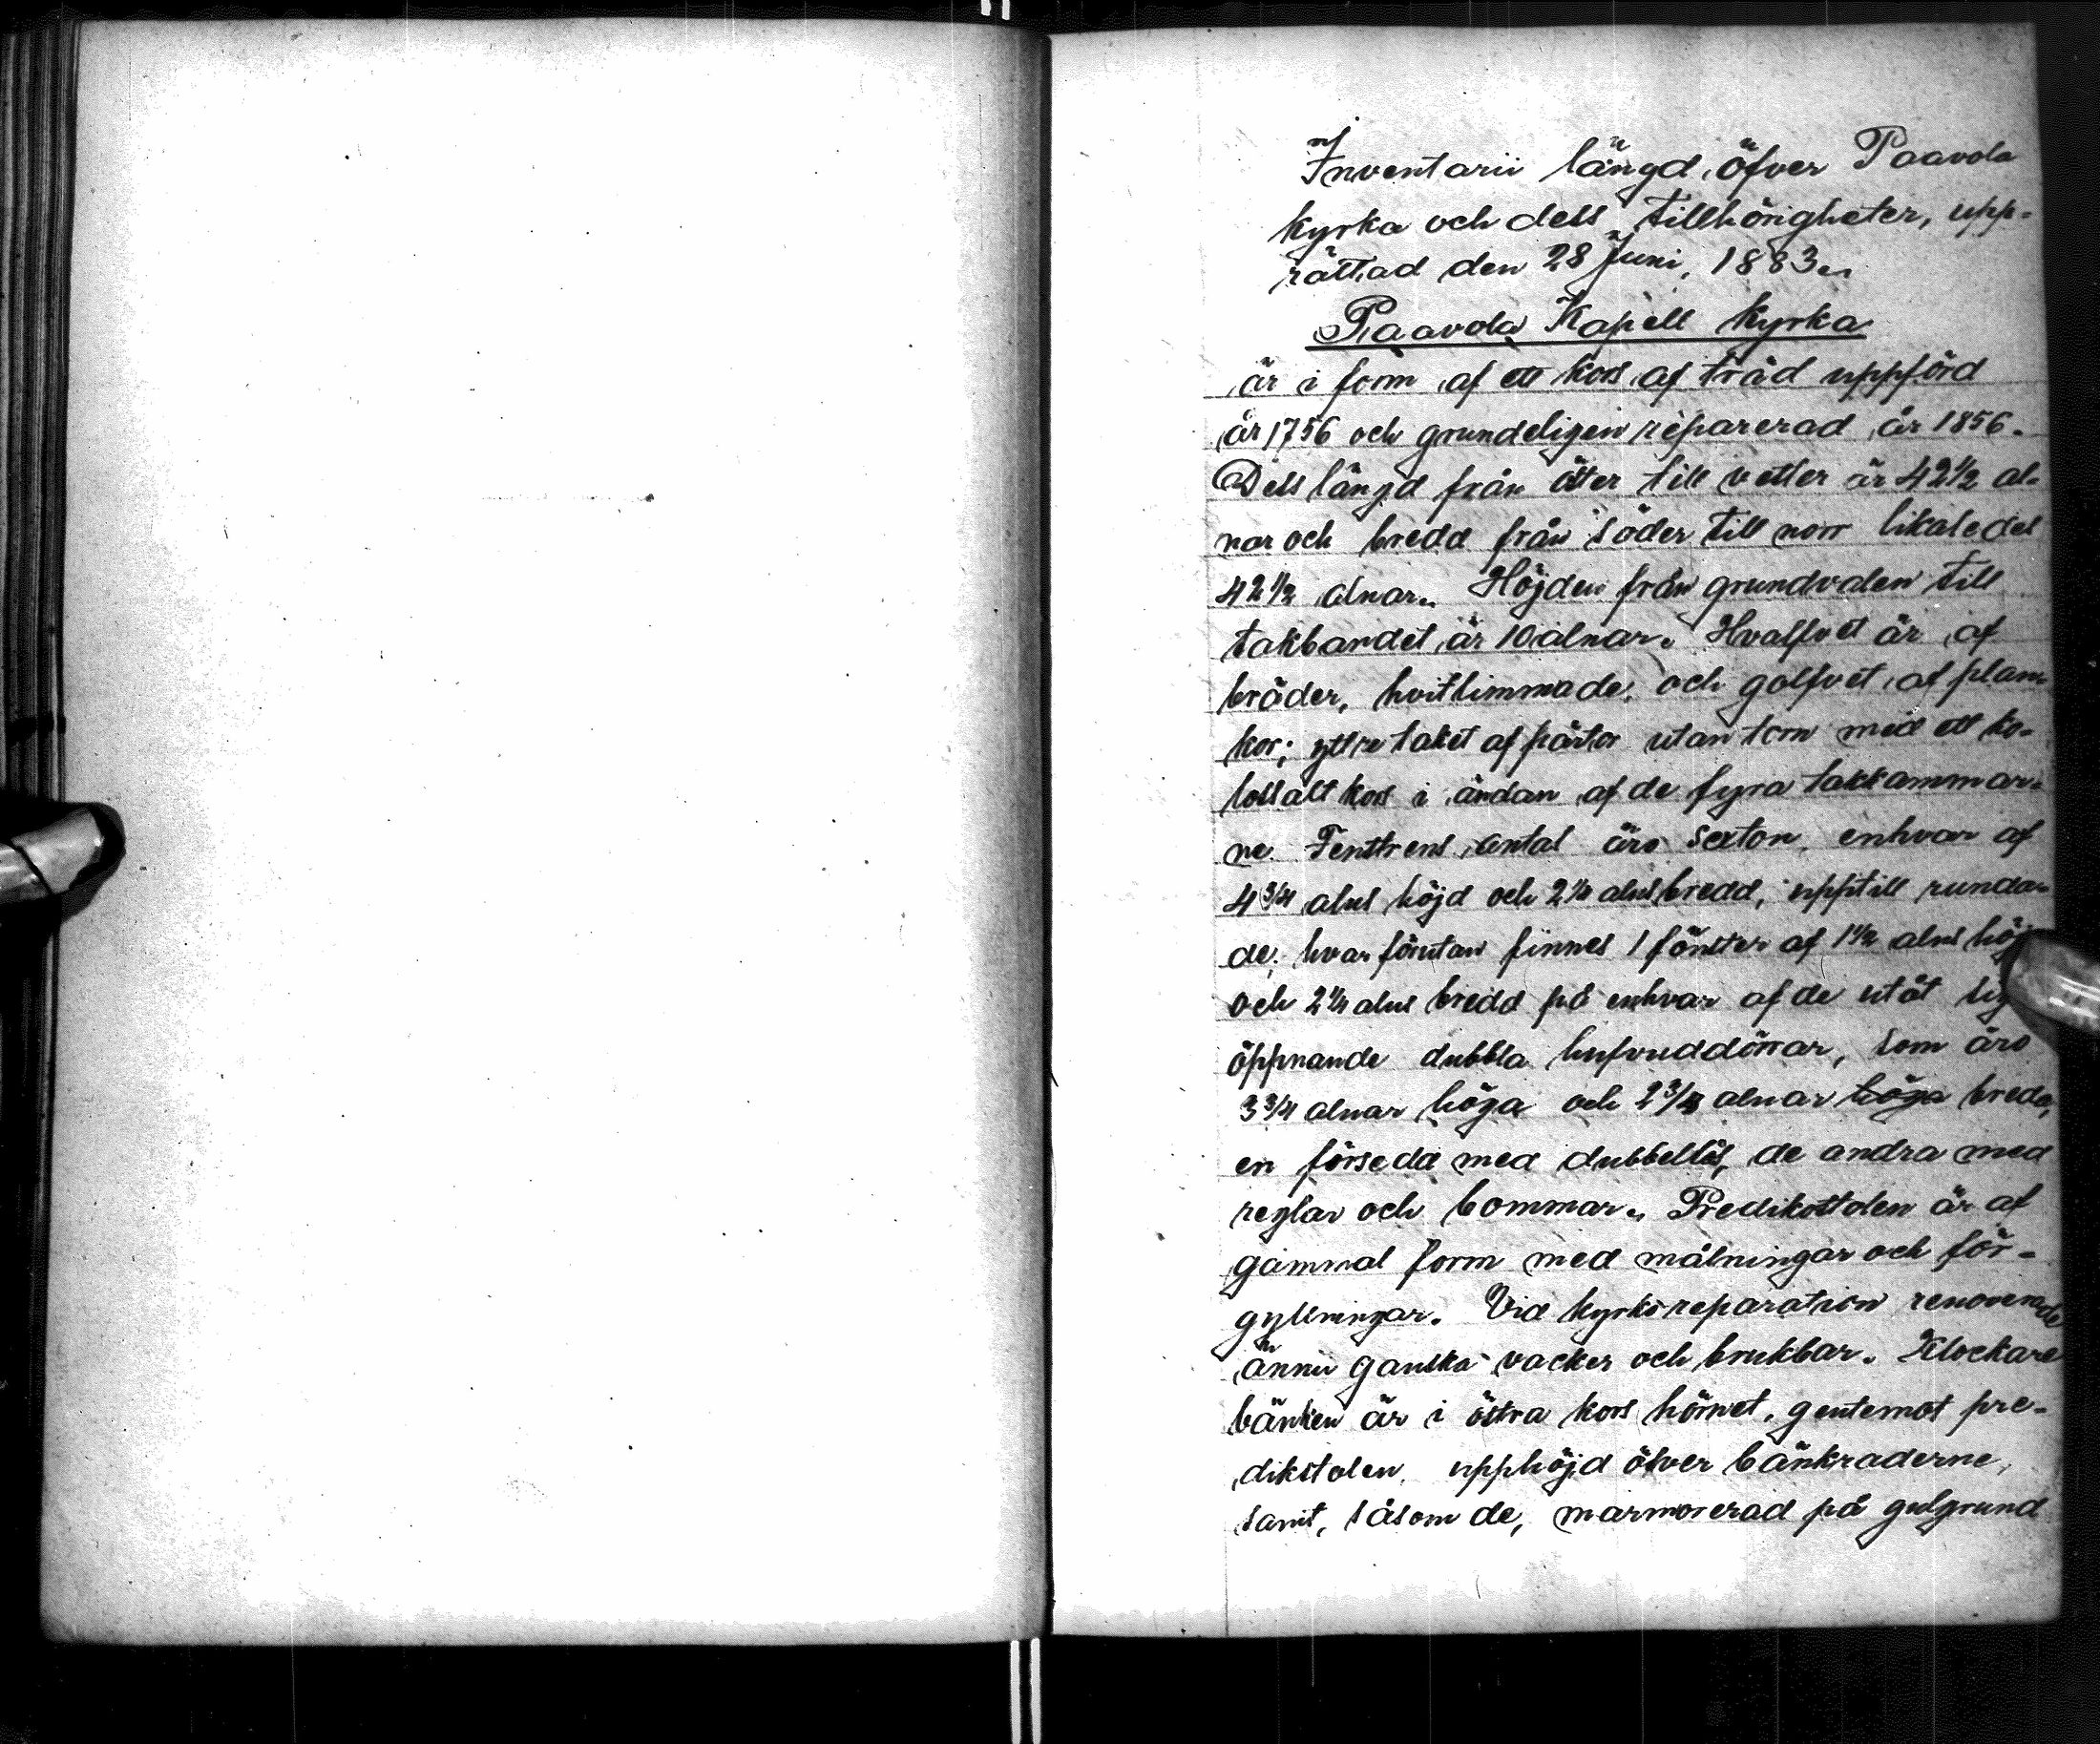 Inventarii längd öfver Paavola
kyrka och dess tillhörigheter, upp-
rättad den 28 Juni, 1883.
Paavola Kapell kyrka
är i form af ett kors af träd uppförd
år 1756 och grundeligen reparerad år 1856.
Dess längd från öster till vester är 42 1/2 al-
nar och bredd från söder till norr likaledes
42 1/2 alnar. Höjden från grundvalen till
takbandet är 10 alnar. Hvalfvet är af
bräder, hvitlimmade, och golfvet af plan-
kor; yttre taket af pärtor utan torn med ett ko-
lossalt kors i ändan af de fyra takkammar-
ne. Fenstrens antal äro sexton, enhvar af
4 3/4 alns höjd och 2 1/4 alns bredd, upptill runda-
de, hvarförutan finnes 1 fönster af 1 1/2 alns höj
och 2 1/4 alns bredd på enhvar af de utåt sig
öppnande dubbla hufvuddörrar, som äro
3 3/4 alnar höga och 2 3/4 alnar höga breda,
en försedd med dubbellås, de andra med
reglar och bommar. Predikostolen är af
gammal form med målningar och för-
gyllningar. Vid kyrkoreparation renoverade
ännu ganska vacker och brukbar. Klockare
bänken är i östra kors hörnet, gentemot pre-
dikstolen, upphöjd öfver bänkraderne,
samt, såsom de, marmorerad på gulgrund